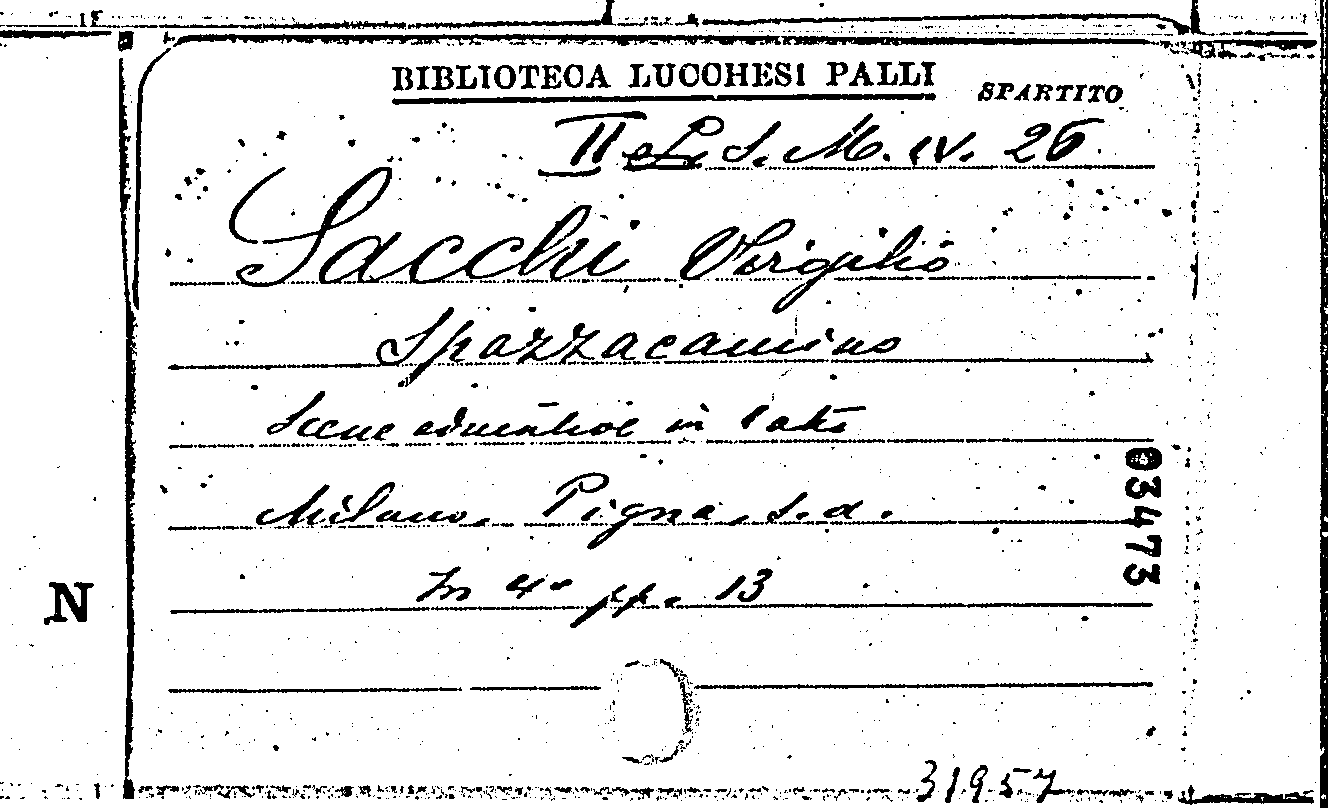 15
BIBLIOTECA LUCCHESI PALLI
SPARTITO
II L. S. M. IV. 26
Sacchi, Virgilio
Spazzacamino
Scene educative in 1 atto
Milano, Pigna, s. d.
In 4º pp. 13
03473
N
31957